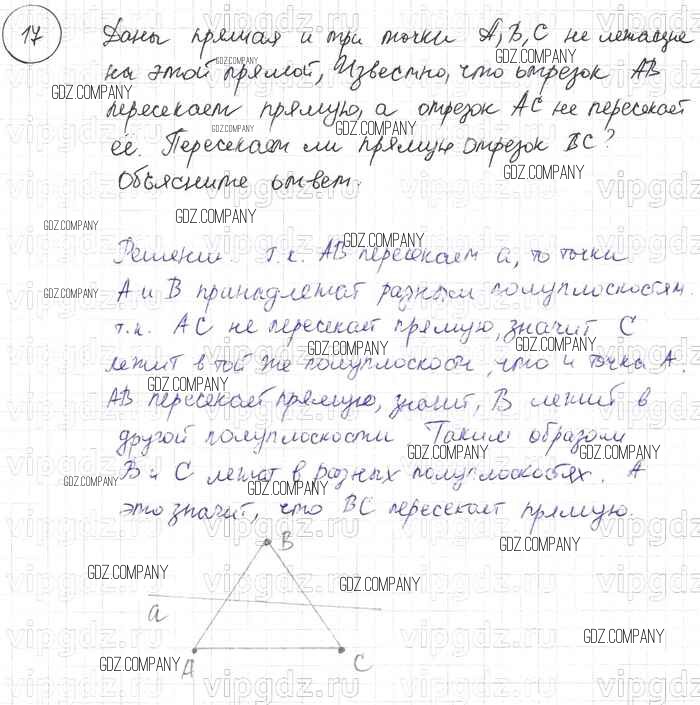 17 Даны прямая и три точки A, B, C не лежащие
на этой прямой, Известно, что отрезок AB
пересекает прямую, а отрезок AC не пересекает
её. Пересекает ли прямую отрезок BC?
Объясните ответ.
Решение. т.к. AB пересекает a, то точки
A и B принадлежат разным полуплоскостям.
т.к. AC не пересекает прямую, значит C
лежит в той же полуплоскости, что и точка A.
AB пересекает прямую, значит, B лежит в
другой полуплоскости Таким образом
B и C лежат в разных полуплоскостях. А
это значит, что BC пересекает прямую.
B
a
A C
GDZ.COMPANY
vipgdz.ru